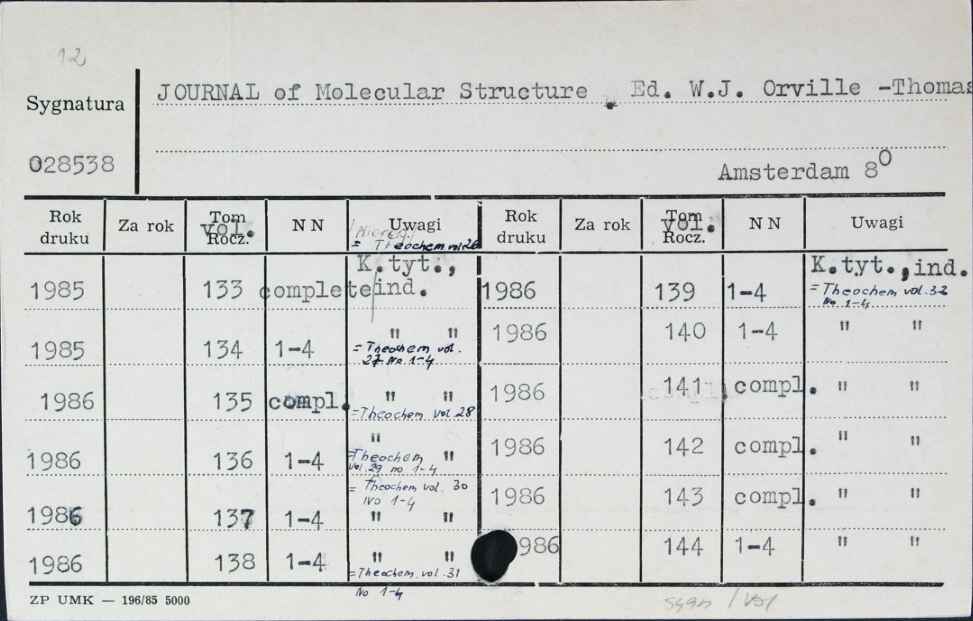 12
Sygnatura
028538
JOURNAL of Molecular Structure . Ed. W.J. Orville -Thomas
Amsterdam 8⁰
Rok druku Za rok Tom Rocz. vol. N N Uwagi Rok druku Za rok Tom Rocz. vol. N N Uwagi
= Theochem
1985 133 complete K.tyt., ind. 1986 139 1-4 K.tyt., ind.
= Theochem vol. 32
No 1-4
1985 134 1-4 " " 1986 140 1-4 " "
= Theochem vol.
27 No 1-4
1986 135 compl. " " 1986 141 compl. " "
= Theochem vol 28
1986 136 1-4 " " 1986 142 compl. " "
= Theochem
vol. 29 no 1-4
= Theochem vol. 30
No 1-4
1986 137 1-4 " " 1986 143 compl. " "
1986 138 1-4 " " 986 144 1-4 " "
= Theochem vol. 31
No 1-4
ZP UMK — 196/85 5000